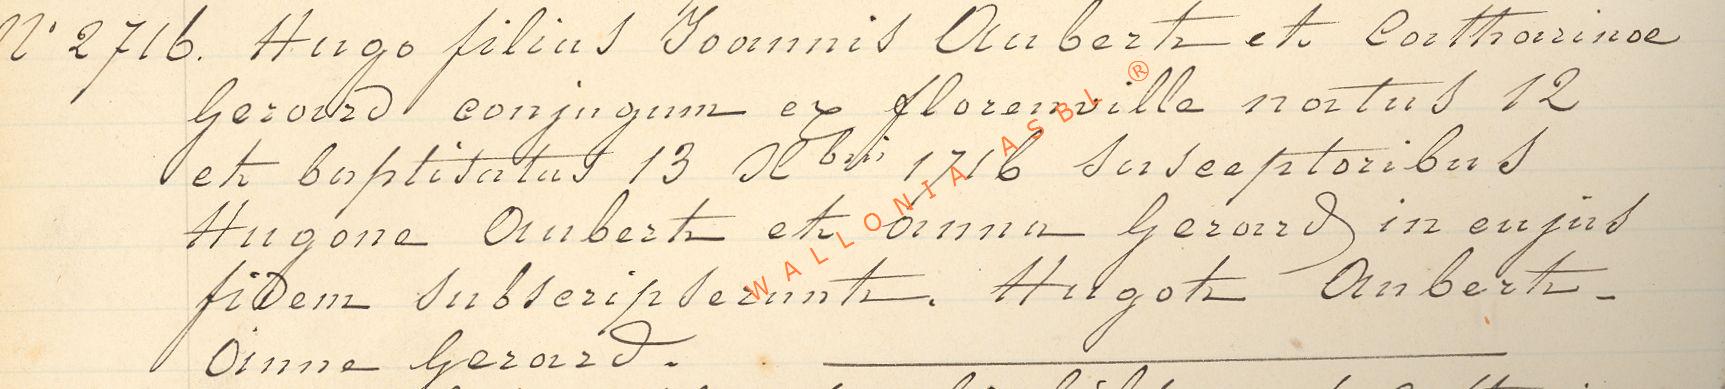 N° 2716. Hugo filius Joannis Aubert et Catharinae
Gerard conjugum ex florenville natus 12
et baptisatus 13 Xbris 1716 susceptoribus
Hugone Aubert et anna Gerard in cujus
fidem subscripserunt. Hugot Aubert -
Anne Gerard.
WALLONIA ASBL ®